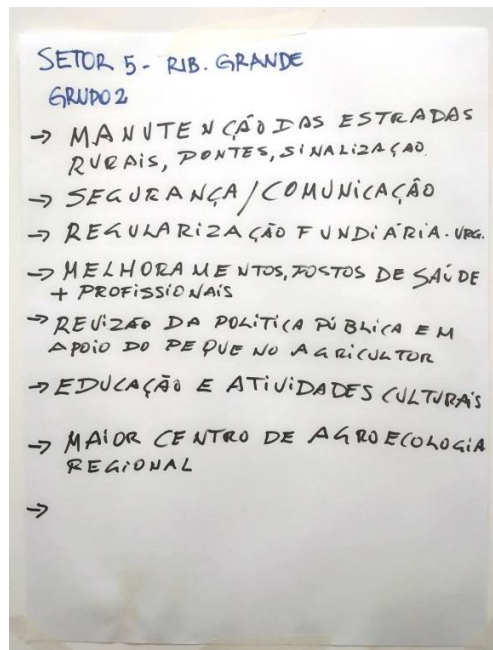 SETOR 5 - RIB. GRANDE
GRUPO 2
→ MANUTENÇÃO DAS ESTRADAS
RURAIS, PONTES, SINALIZAÇAO
→ SEGURANÇA/COMUNICAÇÂO
→ REGULARIZAÇÃO FUNDIÁRIA. URG.
→ MELHORAMENTOS, POSTOS DE SAÚDE
+ PROFISSIONAIS
→ REVIZÃO DA POLÍTICA PÚBLICA EM
APOIO DO PEQUENO AGRICULTOR
→ EDUCAÇÃO E ATIVIDADES CULTURAIS
→ MAIOR CENTRO DE AGROECOLOGIA
REGIONAL
→